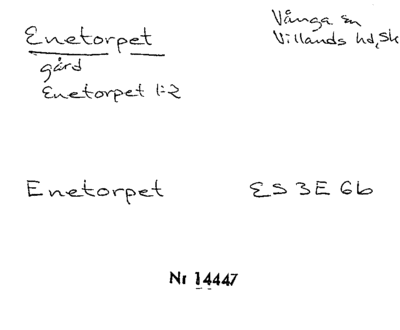 Enetorpet
gård
Enetorpet 1:2
Vånga sn
Villands hd, Sk
Enetorpet ES 3E 6b
Nr 14447